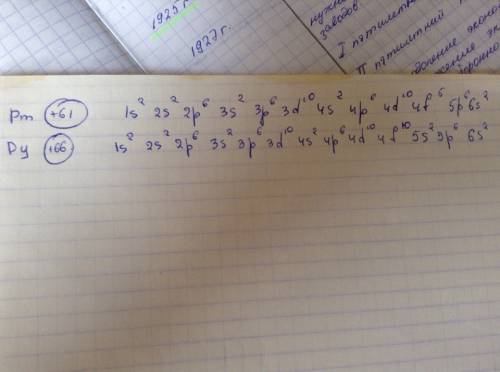 1925 г.
1927 г.
нужно
заводов
I пятилетка
II пятилетка
Pm +61 1s² 2s² 2p⁶ 3s² 3p⁶ 3d¹⁰ 4s² 4p⁶ 4d¹⁰ 4f⁶ 5p⁶ 6s²
Dy +66 1s² 2s² 2p⁶ 3s² 3p⁶ 3d¹⁰ 4s² 4p⁶ 4d¹⁰ 4f¹⁰ 5s² 5p⁶ 6s²